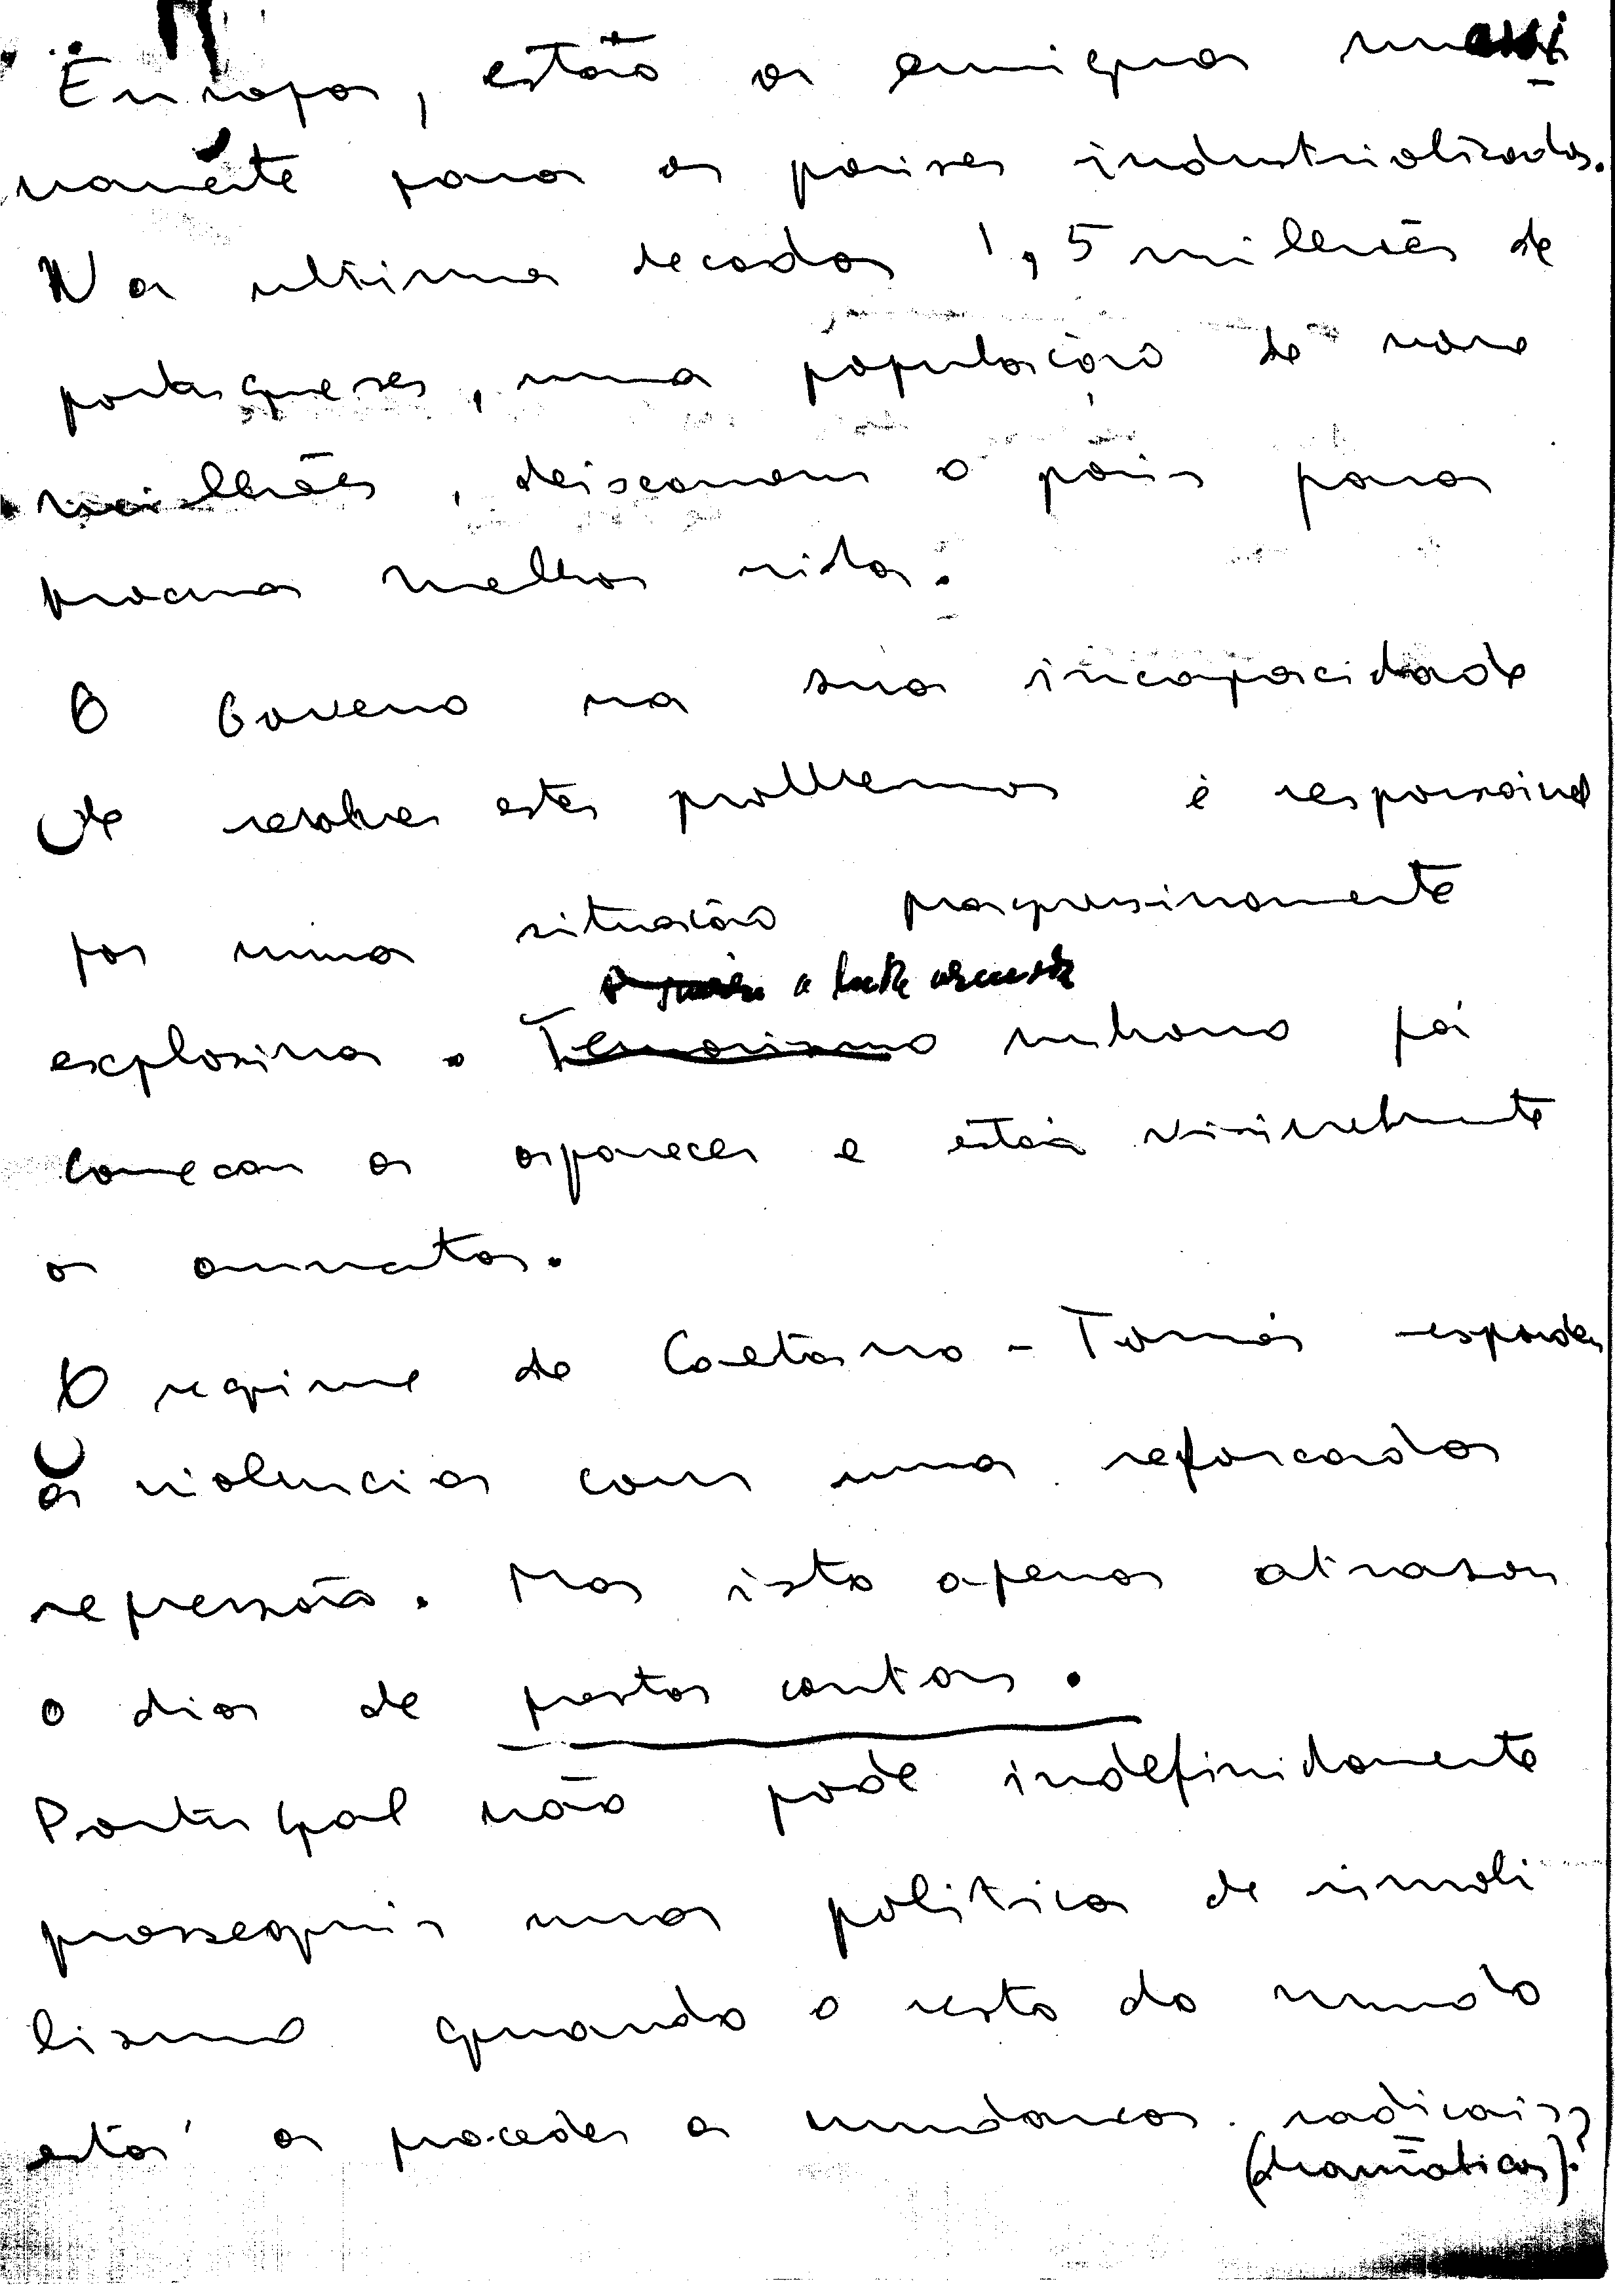 Europa, estão a emigrar massi
vamente para os paises industrializados.
Na ultima decada 1,5 milhões de
portugueses, numa população de nove
milhões, deixaram o pais para
procurar melhor vida.
O Governo na sua incapacidade
de resolver estes problemas é responsavel
por uma situação progressivamente
a luta armada
explosiva. Terrorismo urbano já
começou a aparecer e está visivelmente
a aumentar.
O regime de Caetano - Tomás responde
á violencia com uma reforçada
repressão. Mas isto apenas atrasou
o dia de prestar contas.
Portugal não pode indefinidamente
prosseguir uma politica de imobi
lismo quando o resto do mundo
está a proceder a mudanças radicais?
(dramáticas).